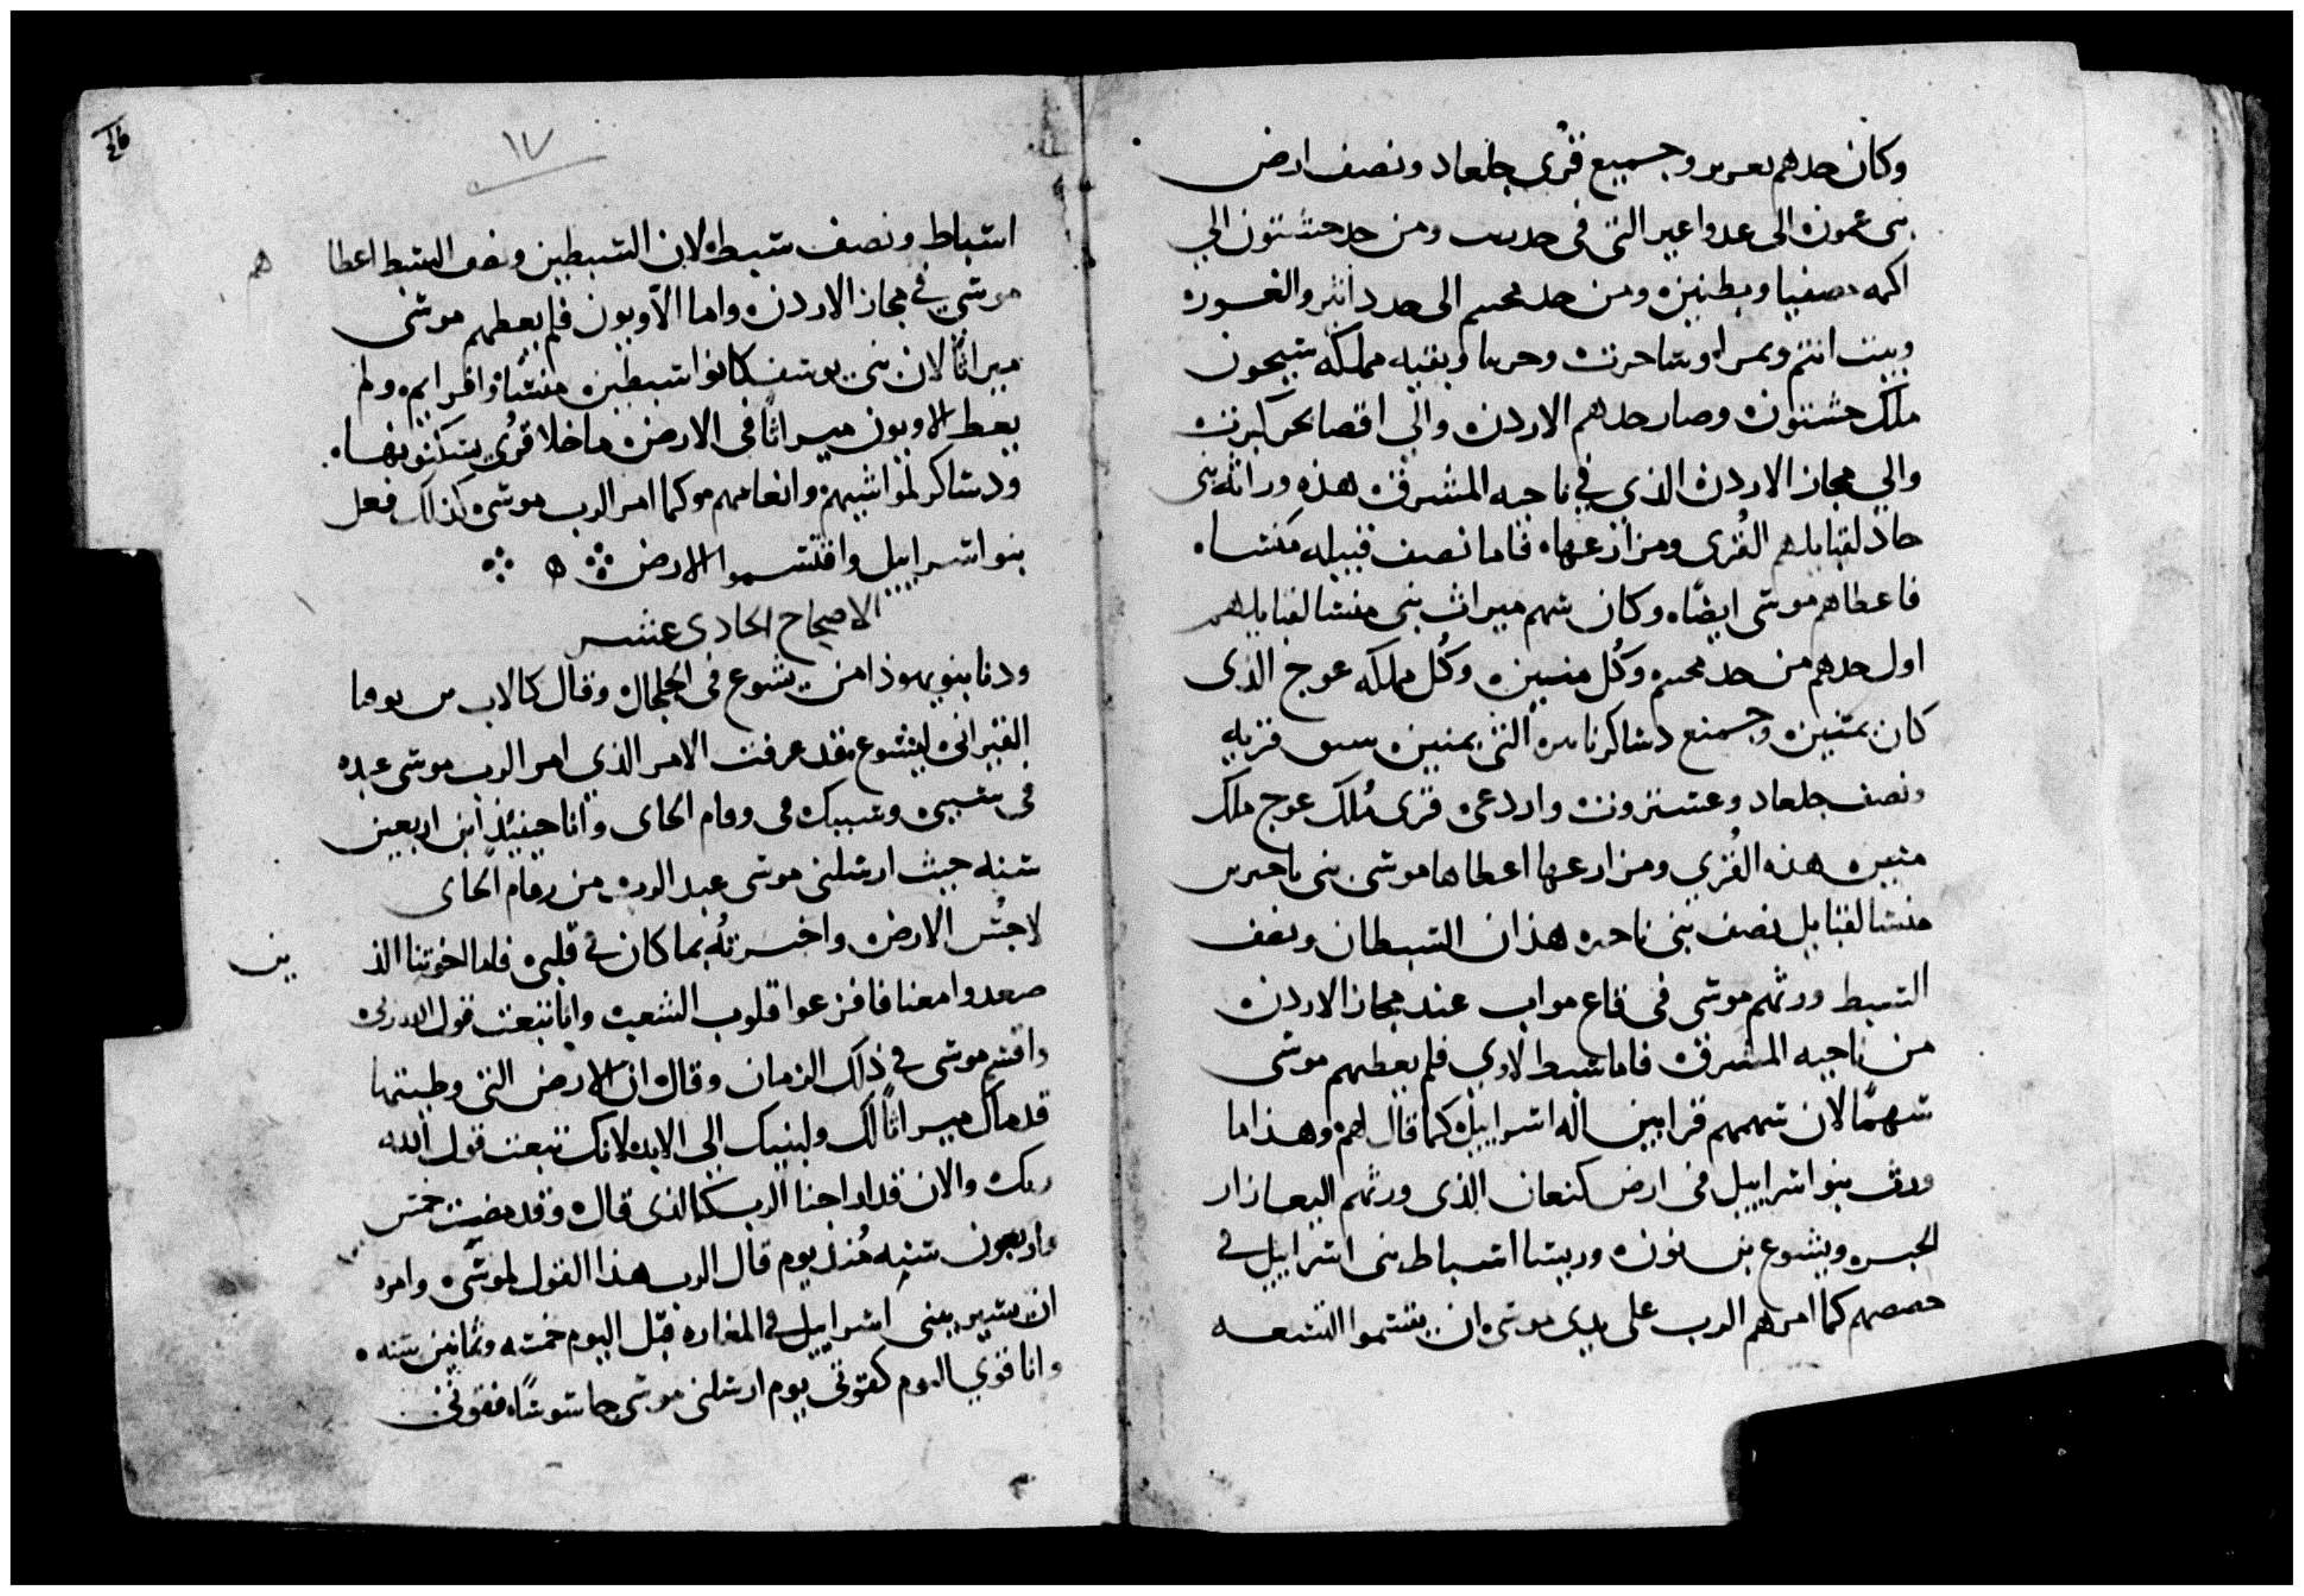 وكان حدهم يعزير وجميع قرى جلعاد ونصف ارض
بنى عمون الى عدواعير التى فى حد ومن حد حشبون الي
ومن حد محنيم الى حد دابير والغور
وبيت وبقيه مملكه سيحون
ملك حشبون وصار حدهم الاردن والي اقصا بحر كنرت
والي مجاز الاردن الذي في ناحيه المشرق هذه وراثه بنى
حاد لقبايلهم القرى ومزارعها فاما نصف قبيله منشا
فاعطاهم موسى ايضًا وكان سهم ميراث بنى منشا لقبايلهم
اول حدهم من حد محنيم وكُل متنين وكُل مملكه عوج الذى
كان بمتنين وجميع التى بمتنين ستون قريه
ونصف جلعاد وعستروت وادرعى قرى مُلك عوج ملك
متنين هذه القُرى ومزارعها اعطاها موسى بنى ماخير بن
منشا لقبايل نصف بنى ماخير هذان السبطان ونصف
السبط ورثهم موسى فى قاع مواب عند مجاز الاردن
من ناحيه المشرق فاما سبط لاوي فلم يعطهم موسى
سهمًا لان سهمهم قرابين اله اسراييل كما قال لهم وهذا ما
ورث بنو اسراييل فى ارض كنعان الذى ورثهم اليعازار
الحبر ويشوع بن نون وريسا اسباط بنى اسراييل في
حصصهم كما امرهم الرب على يدى موسى ان يقتسموا التسعه
١٧
اسباط ونصف سبط لان السبطين ونصف السبط اعطا
هم
موسي في مجاز الاردن واما اللاويون فلم يعطهم موسى
ميراثًا لان بنى يوسف كانوا سبطين منشا وافرايم ولم
يعط اللاويون ميراثًا فى الارض ما خلا قرُى يسكنو نفها
ودساكر لمواشيهم وانعامهم وكما امر الرب موسى كذلك فعل
بنو اسراييل واقتسموا الارض
الاصحاح الحادى عشر
ودنا بنو يهوذا من يشوع فى الجلجال وقال كالاب بن يوفنا
القنزانى ليشوع قد عرفت الامر الذي امر الرب موسى عبده
فى سببى وسببك فى رقام الحاى وانا حينيذ ابن اربعين
سنه حيث ارسلنى موسى عبد الرب من رقام الحاى
لاجُس الارض واخبرتُه بما كان في قلبى فاما اخوتنا الذ
ين
صعدوا معنا فافزعوا قلوب الشعب وانا تبعت قول الله ربى
واقسم موسى في ذلك الزمان وقال ان الارض التى وطيتها
قدماك ميراثًا لك ولبنيك الى الابد لانك تبعت قول الله
ربك والان قد احنا الرب كالذى قال وقد مضت خمس
واربعون سنه مُنذ يوم قال الرب هذا القول لموسى وامره
ان يسير ببنى اسراييل في المفازه قبل اليوم خمسه وثمانين سنه
وانا قوي اليوم كقوتى يوم ارسلنى موسى جاسوسًا فقوتى